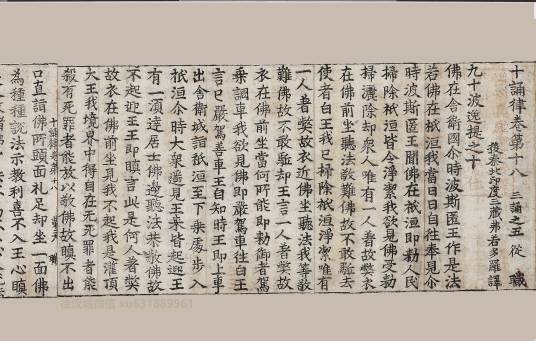 十誦律卷第十八 三誦之五 從 職
後秦北印度三藏弗若多羅譯
九十波逸提之十
佛在舍衛國尒時波斯匿王作是法
若佛在祇洹我當日日自往奉見尒
時波斯匿王聞佛在祇洹即勑人民
掃除祇洹皆令淨潔我欲見佛受勑
掃灑除却衆人唯有一人着故弊衣
在佛前坐聽法敬難佛故不敢驅去
使者白王我已掃除祇洹淨潔唯有
一人着弊故衣近佛坐聽法我等敬
難佛故不敢驅却王言一人着弊故
衣在佛前坐當何所能即勑御者駕
乘調車我欲見佛即嚴駕車往白王
言已嚴駕善車王自知時王即上車
出舍衛城詣祇洹至下乘處步入
祇洹尒時大衆遙見王來皆起迎王
有一須達居士佛邊聽法恭敬佛故
不起迎王王即瞋言此是何人着弊
故衣在佛前坐見我不起我是灌頂
大王我境界中得自在无死罪者能
殺有死罪者能放以敬佛故瞋不出
十誦律卷第十八
口直詣佛所頭面札足却坐一面佛
為種種說法示教利喜不入王心瞋
xu631889961